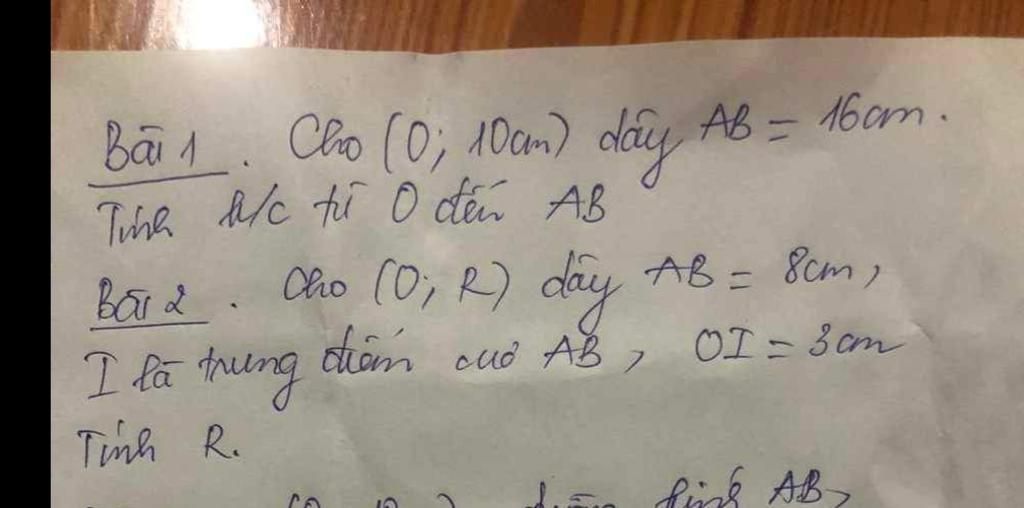 Bài 1. Cho (O; 10cm) dây AB = 16cm.
Tính k/c từ O đến AB
Bài 2. Cho (O; R) dây AB = 8cm,
I là trung điểm của AB, OI = 3cm
Tính R.
kính AB,